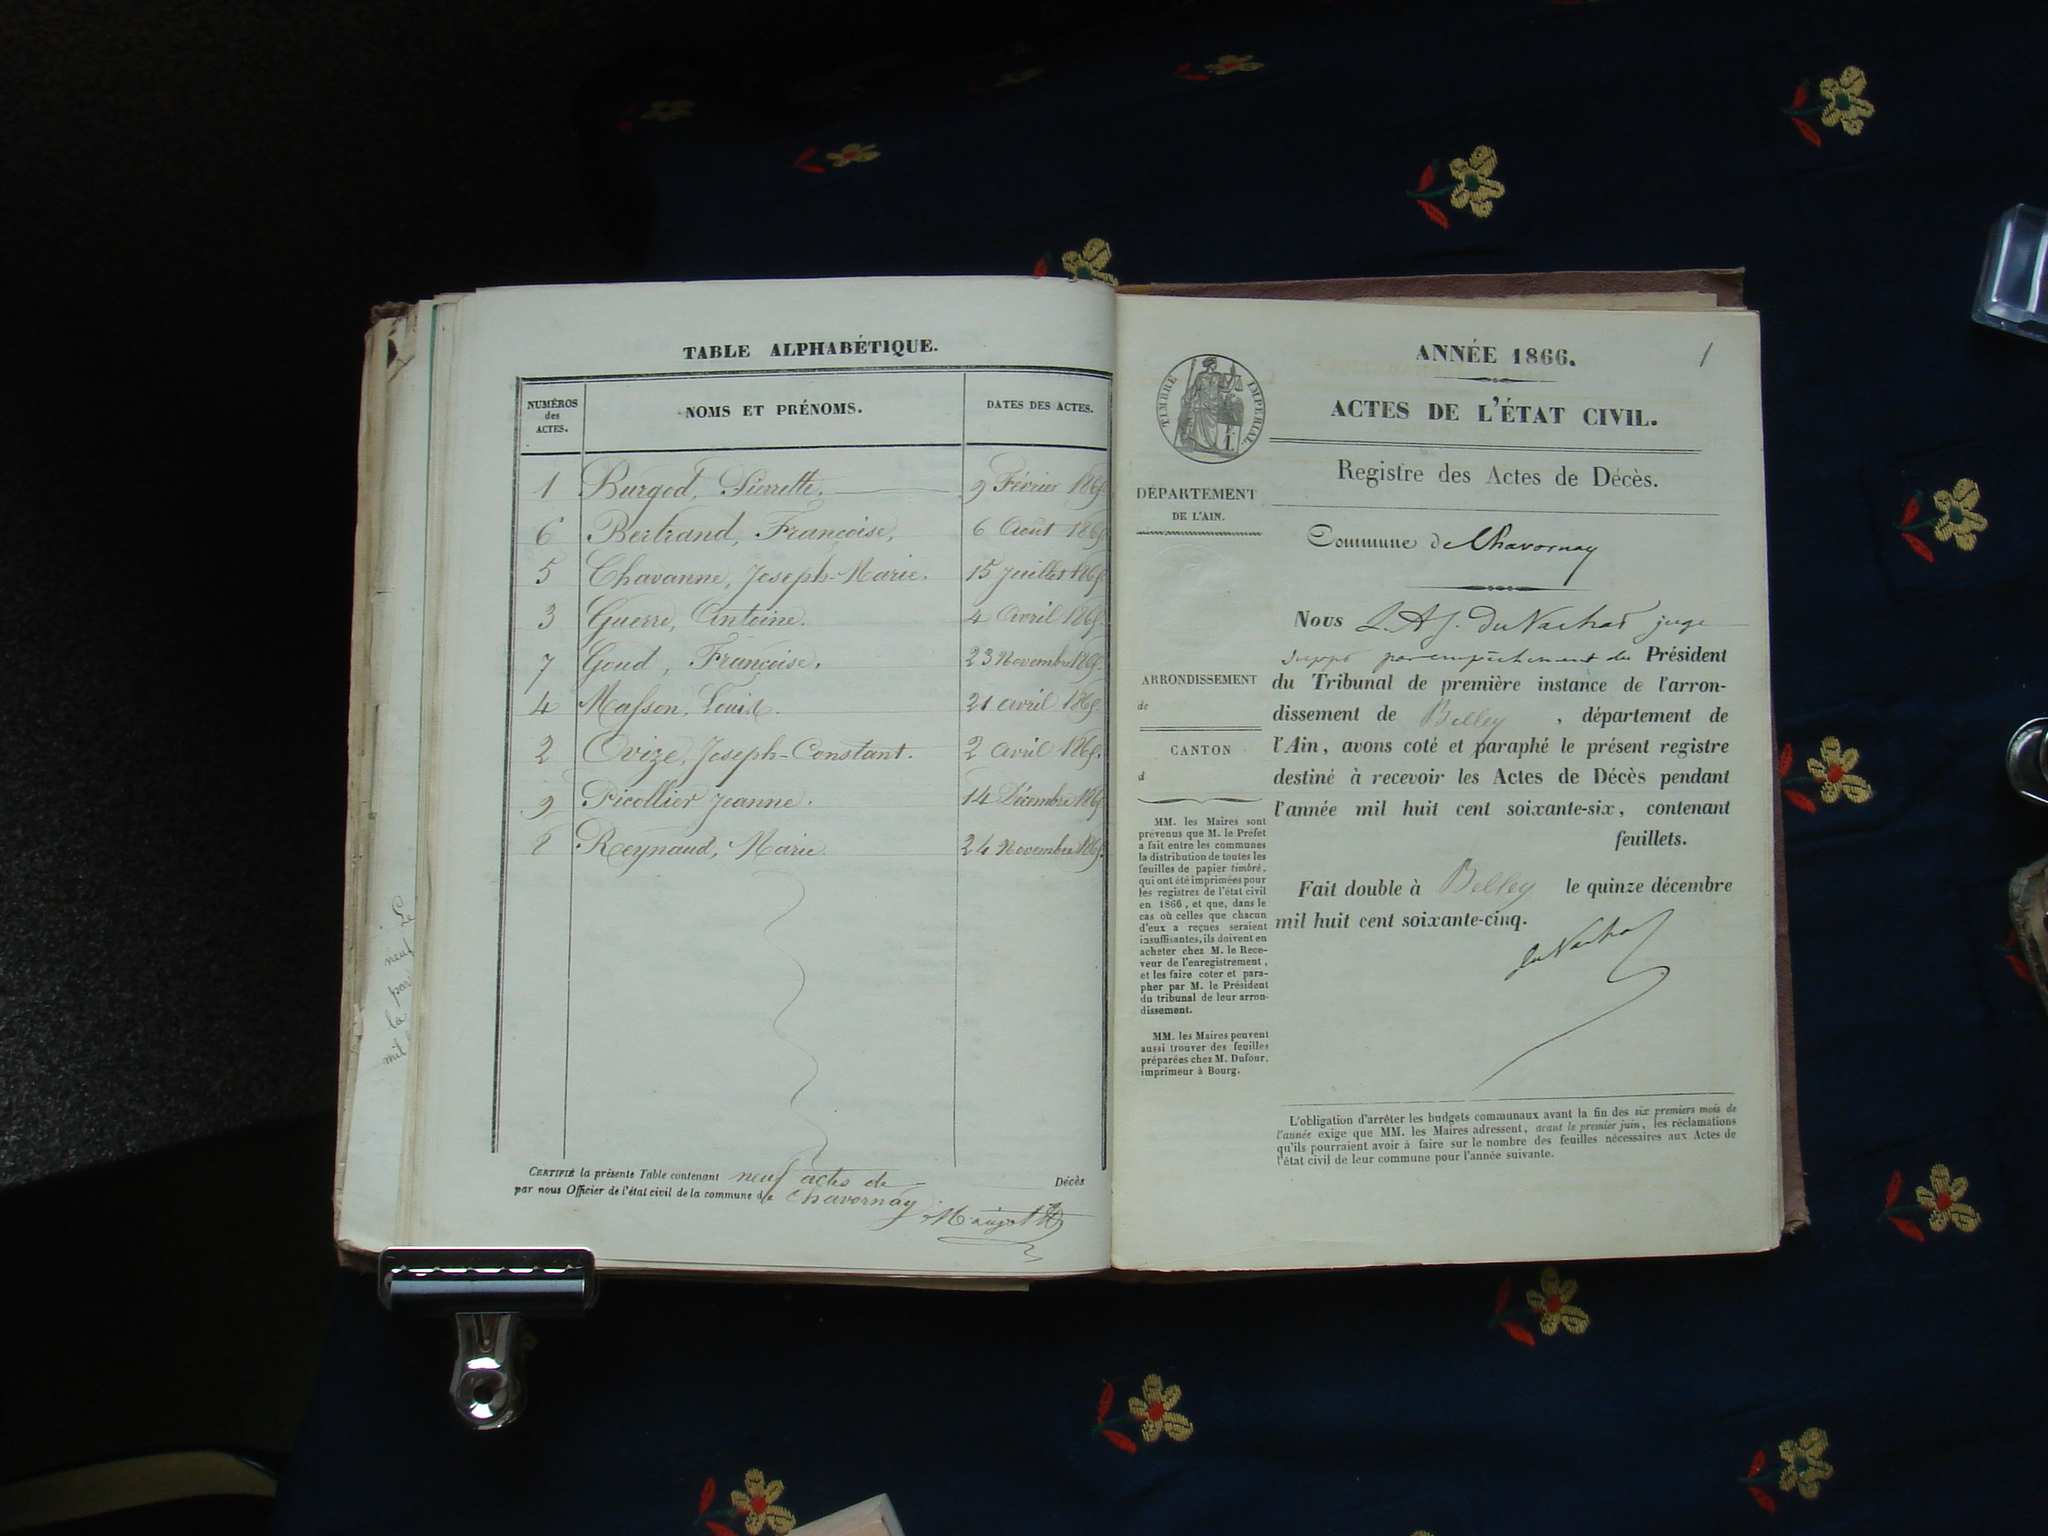 TABLE ALPHABÉTIQUE.
NUMÉROS des ACTES. NOMS ET PRÉNOMS. DATES DES ACTES.
1 Burgod, Pierrette. 9 Février 1865.
6 Bertrand, Françoise, 6 Août 1865
5 Chavanne, Joseph-Marie. 15 Juillet 1865
3 Guerre, Antoine. 4 Avril 1865.
7 Goud, Françoise. 23 Novembre 1865.
4 Masson, Louis. 21 Avril 1865.
2 Ovize, Joseph-Constant. 2 Avril 1865.
9 Picollier Jeanne. 14 Décembre 1865
8 Reynaud, Marie. 24 Novembre 1865.
CERTIFIÉ la présente Table contenant neuf actes de Décès
par nous Officier de l'état civil de la commune de Chavornay
Le
neuf
par
la
mil
1
ANNÉE 1866.
ACTES DE L'ÉTAT CIVIL.
TIMBRE IMPERIAL
Registre des Actes de Décès.
DÉPARTEMENT
DE L'AIN.
Commune de Chavornay
ARRONDISSEMENT
de
CANTON
d
MM. les Maires sont
prévenus que M. le Préfet
a fait entre les communes
la distribution de toutes les
feuilles de papier timbré,
qui ont été imprimées pour
les registres de l'état civil
en 1866, et que, dans le
cas où celles que chacun
d'eux a reçues seraient
insuffisantes, ils doivent en
acheter chez M. le Rece-
veur de l'enregistrement,
et les faire coter et para-
pher par M. le Président
du tribunal de leur arron-
dissement.
MM. les Maires peuvent
aussi trouver des feuilles
préparées chez M. Dufour,
imprimeur à Bourg.
Nous juge
par empêchement du Président
du Tribunal de première instance de l'arron-
dissement de Belley, département de
l'Ain, avons coté et paraphé le présent registre
destiné à recevoir les Actes de Décès pendant
l'année mil huit cent soixante-six, contenant
feuillets.
Fait double à Belley le quinze décembre
mil huit cent soixante-cinq.
L'obligation d'arrêter les budgets communaux avant la fin des six premiers mois de
l'année exige que MM. les Maires adressent, avant le premier juin, les réclamations
qu'ils pourraient avoir à faire sur le nombre des feuilles nécessaires aux Actes de
l'état civil de leur commune pour l'année suivante.